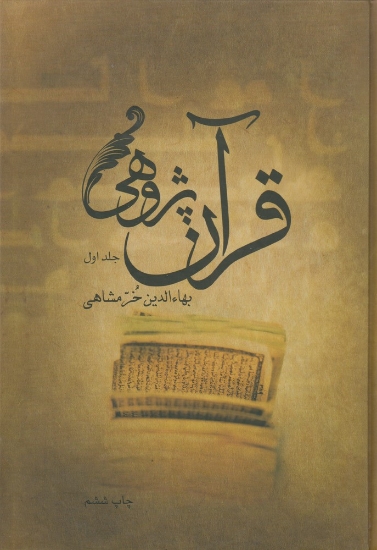 قرآن پژوهی
جلد اول
بهاءالدین خُرّمشاهی
چاپ ششم